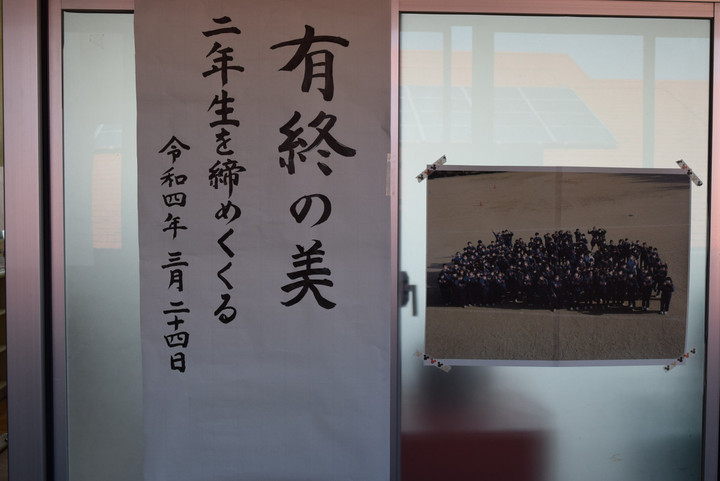 有終の美
二年生を締めくくる
令和四年 三月二十四日